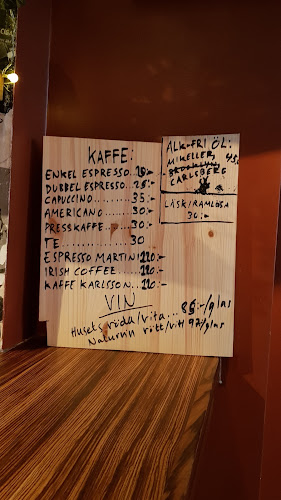 KAFFE:
ENKEL ESPRESSO..20:-
DUBBEL ESPRESSO...25:-
CAPUCCINO.........35:-
AMERICANO.........30:-
PRESSKAFFE........30:-
TE...............30
ESPRESSO MARTINI 120:-
IRISH COFFEE.....120:-
KAFFE KARLSSON...120:-
VIN
Husets röda/vita... 85:-/glas
Naturvin rött/vitt 92/glas
ALK-FRI ÖL:
MIKELLER, 45:-
BROOKLYN,
CARLSBERG
LÄSK/RAMLÖSA
30:-